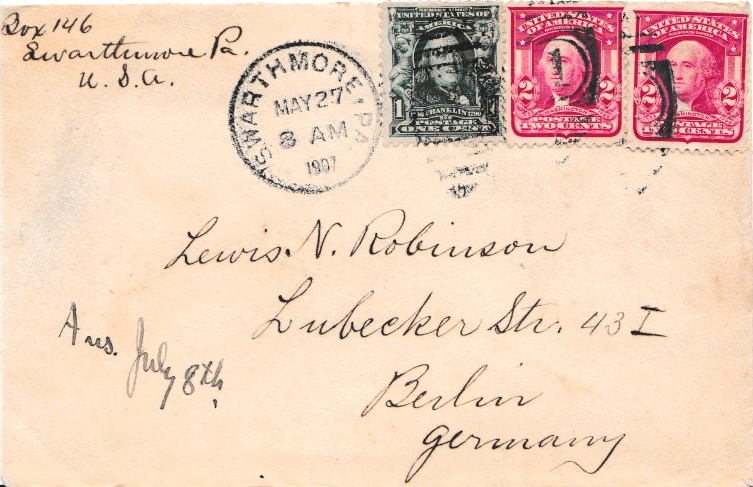 Box 146
Swarthmore Pa.
U. S. A.
SWARTHMORE, PA.
MAY 27
8 AM
1907
SERIES 1902
UNITED STATES OF AMERICA
1
FRANKLIN
POSTAGE
ONE CENT
UNITED STATES
OF AMERICA
SERIES 1902
2 2
POSTAGE
TWO CENTS
UNITED STATES
OF AMERICA
2 2
TWO CENTS
Lewis. N. Robinson
Lubecker Str. 43 I
Berlin
Germany
Ans. July 8th.